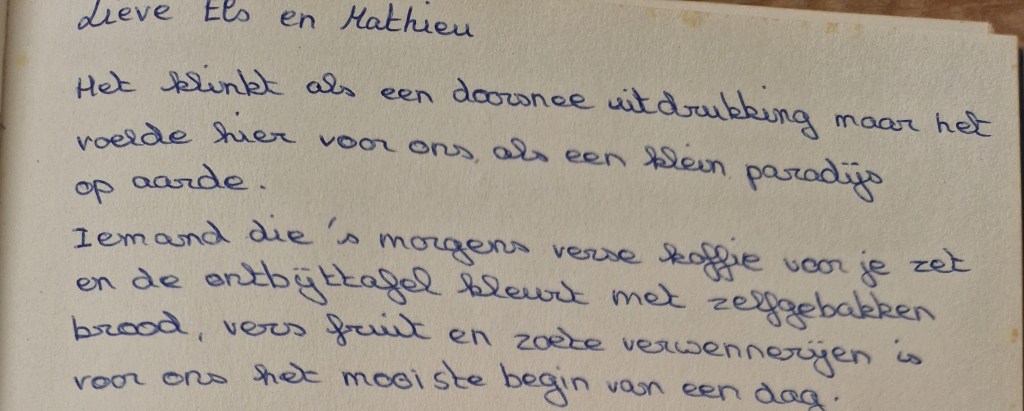 Lieve Els en Mathieu
Het klinkt als een doorsnee uitdrukking maar het
voelde hier voor ons als een klein paradijs
op aarde.
Iemand die 's morgens verse koffie voor je zet
en de ontbijttafel kleurt met zelfgebakken
brood, vers fruit en zoete verwennerijen is
voor ons het mooiste begin van een dag.